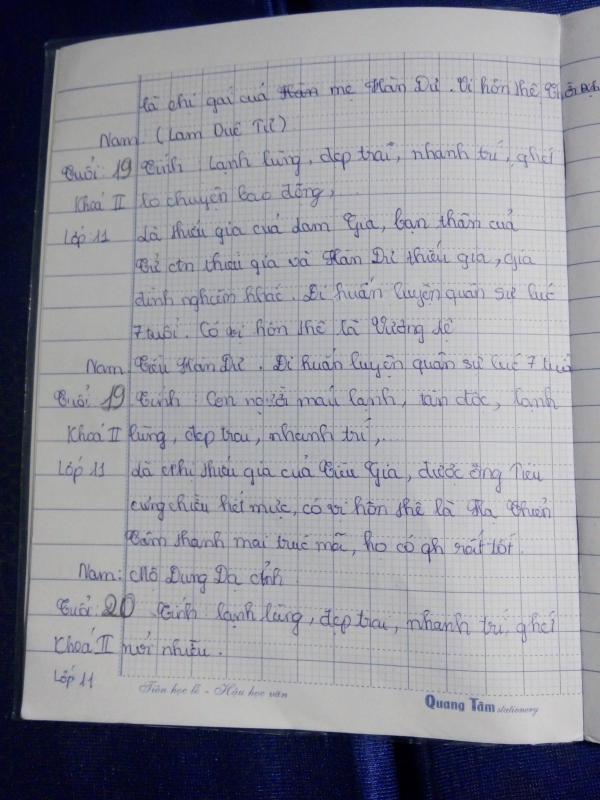 là chị gái của mẹ Hàn Dư. Vị hôn thê
Nam. (Lam Duệ Tử)
Tuổi: 19 Tính: lạnh lùng, đẹp trai, nhanh trí, ghét
Khoá II lo chuyện bao đồng,
Lớp 11 là thiếu gia của Lam Gia, bạn thân của
thiếu gia và Hàn Dư thiếu gia, gia
đình nghiêm khắc. Đi huấn luyện quân sự lúc
7 tuổi. Có vị hôn thê là Vương
Nam. Tiêu Hàn Dư. Đi huấn luyện quân sự lúc 7 tuổi
Tuổi: 19 Tính: Con người máu lạnh, tàn độc, lạnh
Khoá II lùng, đẹp trai, nhanh trí,...
Lớp 11 là nhị thiếu gia của Tiêu Gia, được ông Tiêu
cưng chiều hết mực, có vị hôn thê là Hạ Thiên
Cầm thanh mai trúc mã, họ có qh rất tốt.
Nam: Mộ Dung Dạ
Tuổi: 20 Tính lạnh lùng, đẹp trai, nhanh trí, ghét
Khoá II nói nhiều.
Lớp 11
Tiên học lễ - Hậu học văn
Quang Tâm stationery